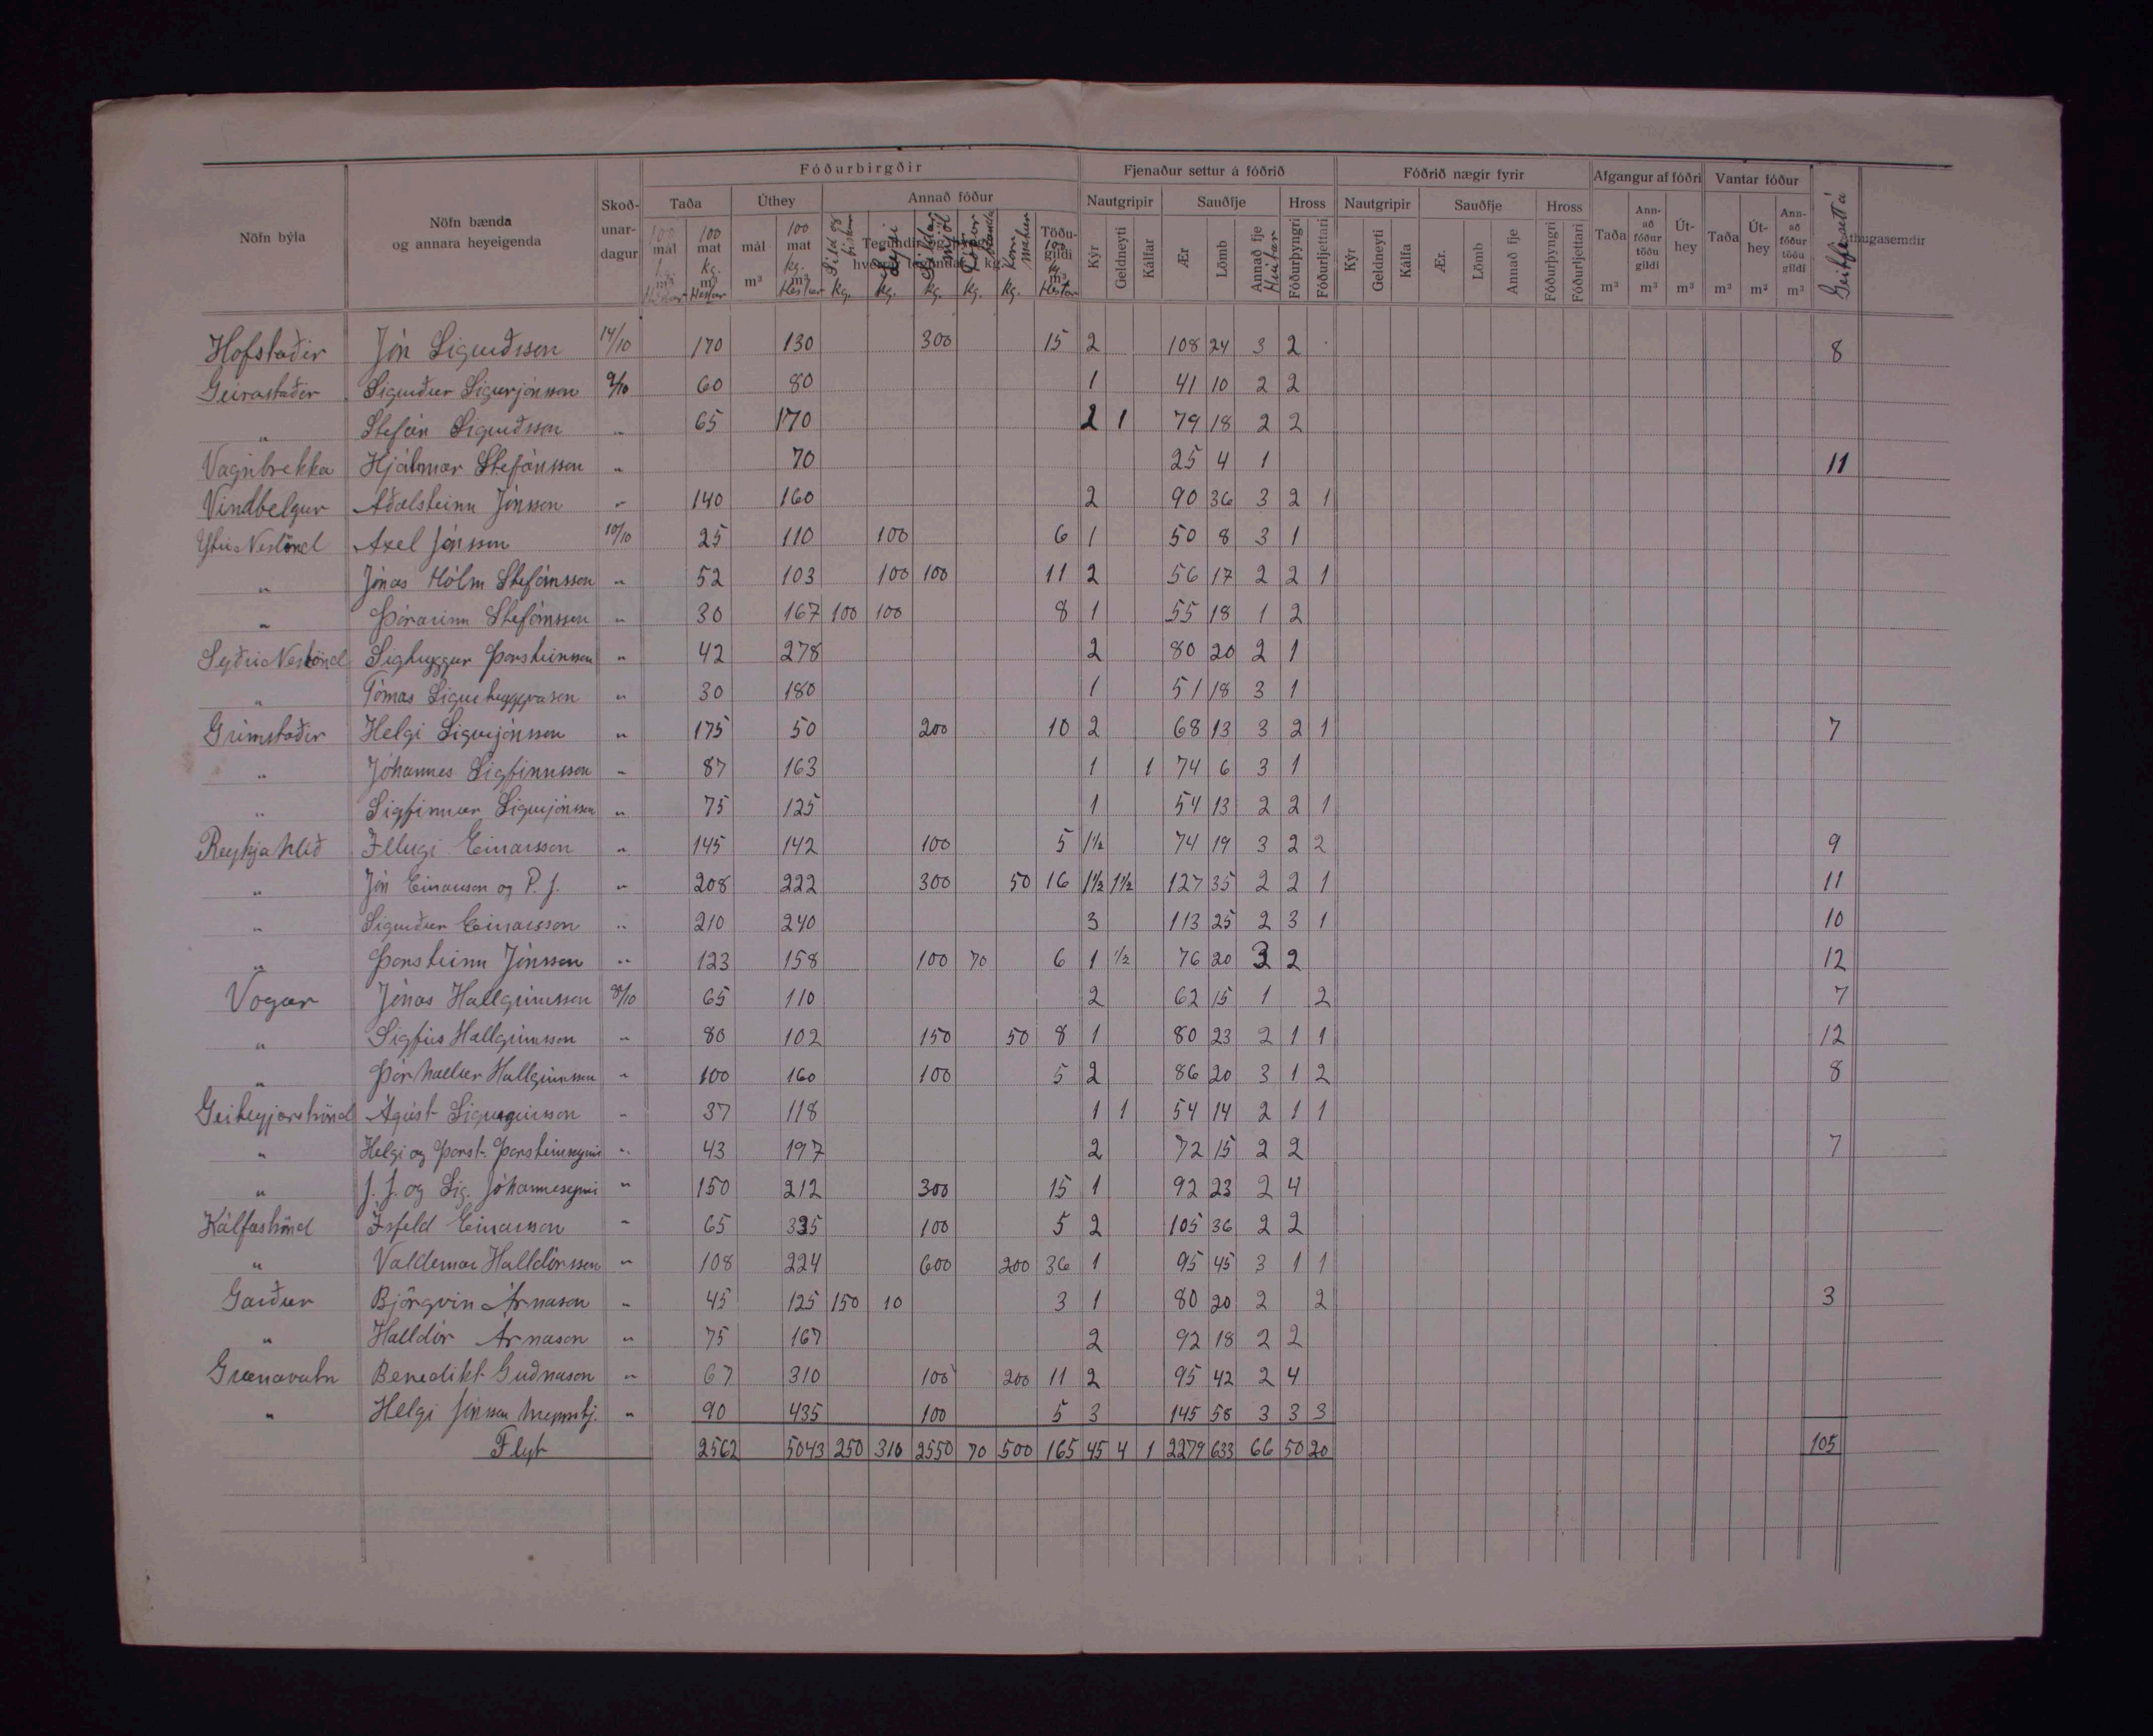 Fóðurbirgðir Fjenaður settur á fóðrið Fóðrið nægir fyrir Afgangur af fóðri Vantar fóður
Nöfn býla Nöfn bænda og annara heyeigenda Skoð-unar-dagur Taða Úthey Annað fóður Nautgripir Sauðfje Hross Nautgripir Sauðfje Hross
mál m³ 100 mat kg. Hestar mál m³ 100 mat kg. Hestar kg. kg. kg. kg. kg. Töðu-gildi Hestar Kýr Geldneyti Kálfar Ær Lömb Annað fje Hrútar Fóðurþyngri Fóðurljettari Kýr Geldneyti Kálfa Ær. Lömb Annað fje Fóðurþyngri Fóðurljettari Taða m³ Ann-að fóður töðu gildi m³ Út-hey m³ Taða m³ Út-hey m³ Ann-að fóður töðu gildi m³ thugasemdir
Hofstaðir Jón Sigurðsson 14/10 170 130 300 15 2 108 24 3 2 8
Geirastaðir Sigurður Sigurjónsson 9/10 60 80 1 41 10 2 2
" Stefán Sigurðsson " 65 170 2 1 79 18 2 2
Vagnbrekka Hjálmar Stefánsson " 70 25 4 1 11
Vindbelgur Aðalsteinn Jónsson " 140 160 2 90 36 3 2 1
Ytri Neslönd Axel Jónsson 10/10 25 110 100 6 1 50 8 3 1
" Jónas Hólm Stefánsson " 52 103 100 100 11 2 56 17 2 2 1
" Þórarinn Stefánsson " 30 167 100 100 8 1 55 18 1 2
Syðri Neslönd Sigtryggur Þorsteinsson " 42 278 2 80 20 2 1
" Tómas Sigurtryggvason " 30 180 1 51 18 3 1
Grímstaðir Helgi Sigurjónsson " 175 50 200 10 2 68 13 3 2 1 7
" Jóhannes Sigfinnsson " 87 163 1 1 74 6 3 1
" Sigfinnur Sigurjónsson " 75 125 1 54 13 2 2 1
Reykjahlíð Illugi Einarsson " 145 142 100 5 1½ 74 19 3 2 2 9
" Jón Einarsson og P. J. " 208 222 300 50 16 1½ 1½ 127 35 2 2 1 11
" Sigurður Einarsson " 210 240 3 113 25 2 3 1 10
" Þorsteinn Jónsson " 123 158 100 70 6 1 ½ 76 20 3 2 12
Vogar Jónas Hallgrímsson 8/10 65 110 2 62 15 1 2 7
" Sigfús Hallgrímsson " 80 102 150 50 8 1 80 23 2 1 1 12
" Þórhallur Hallgrímsson " 100 160 100 5 2 86 20 3 1 2 8
Geiteyjarströnd Ágúst Sigurgeirsson " 37 118 1 1 54 14 2 1 1
" Helgi og Þorst. Þorsteinssynir " 43 197 2 72 15 2 2 7
" J. J. og Sig. Jóhannessynir " 150 212 300 15 1 92 23 2 4
Kálfaströnd Ísfeld Einarsson " 65 335 100 5 2 105 36 2 2
" Valdemar Halldórsson " 108 224 600 200 36 1 95 45 3 1 1
Garður Björgvin Árnason " 45 125 150 10 3 1 80 20 2 2 3
" Halldór Árnason " 75 167 2 92 18 2 2
Grænavatn Benedikt Guðnason " 67 310 100 200 11 2 95 42 2 4
" Helgi Jónsson hreppstj. " 90 435 100 5 3 145 58 3 3 3
Flyt 2562 5043 250 310 2550 70 500 165 45 4 1 2279 633 66 50 20 105